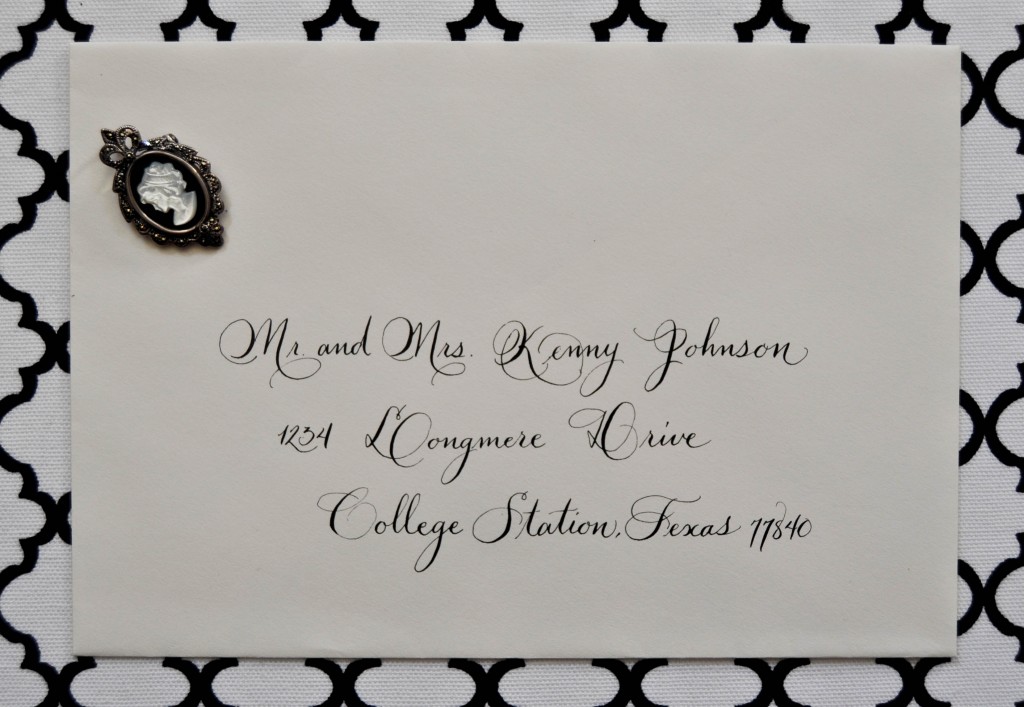 Mr. and Mrs. Kenny Johnson
1234 Longmere Drive
College Station, Texas 77840